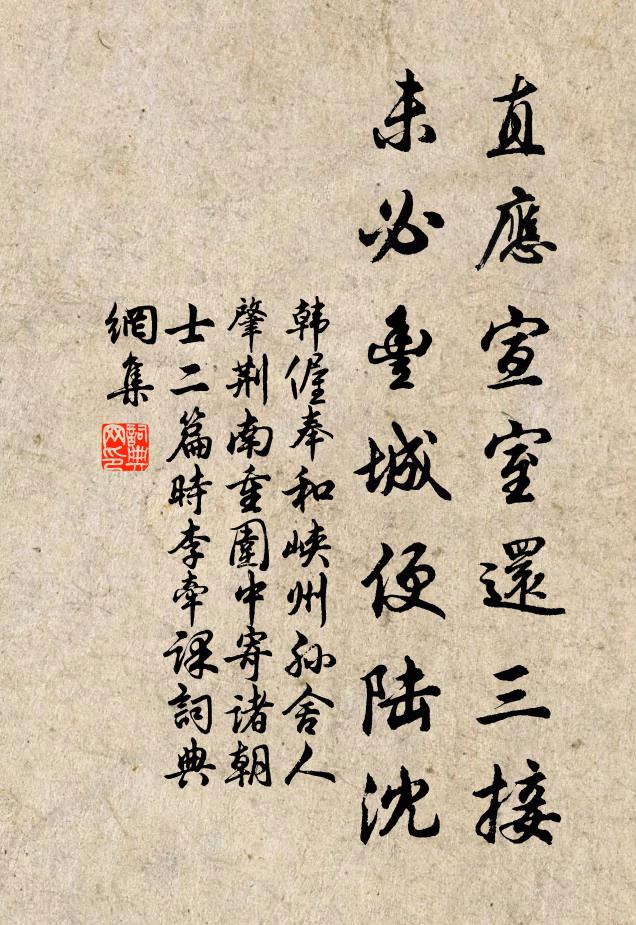 直應宣室還三接
未必豐城便陸沈
韩偓奉和峡州孙舍人
肇荆南重围中寄诸朝
士二篇時李牵课詞典
網集
詞典網印